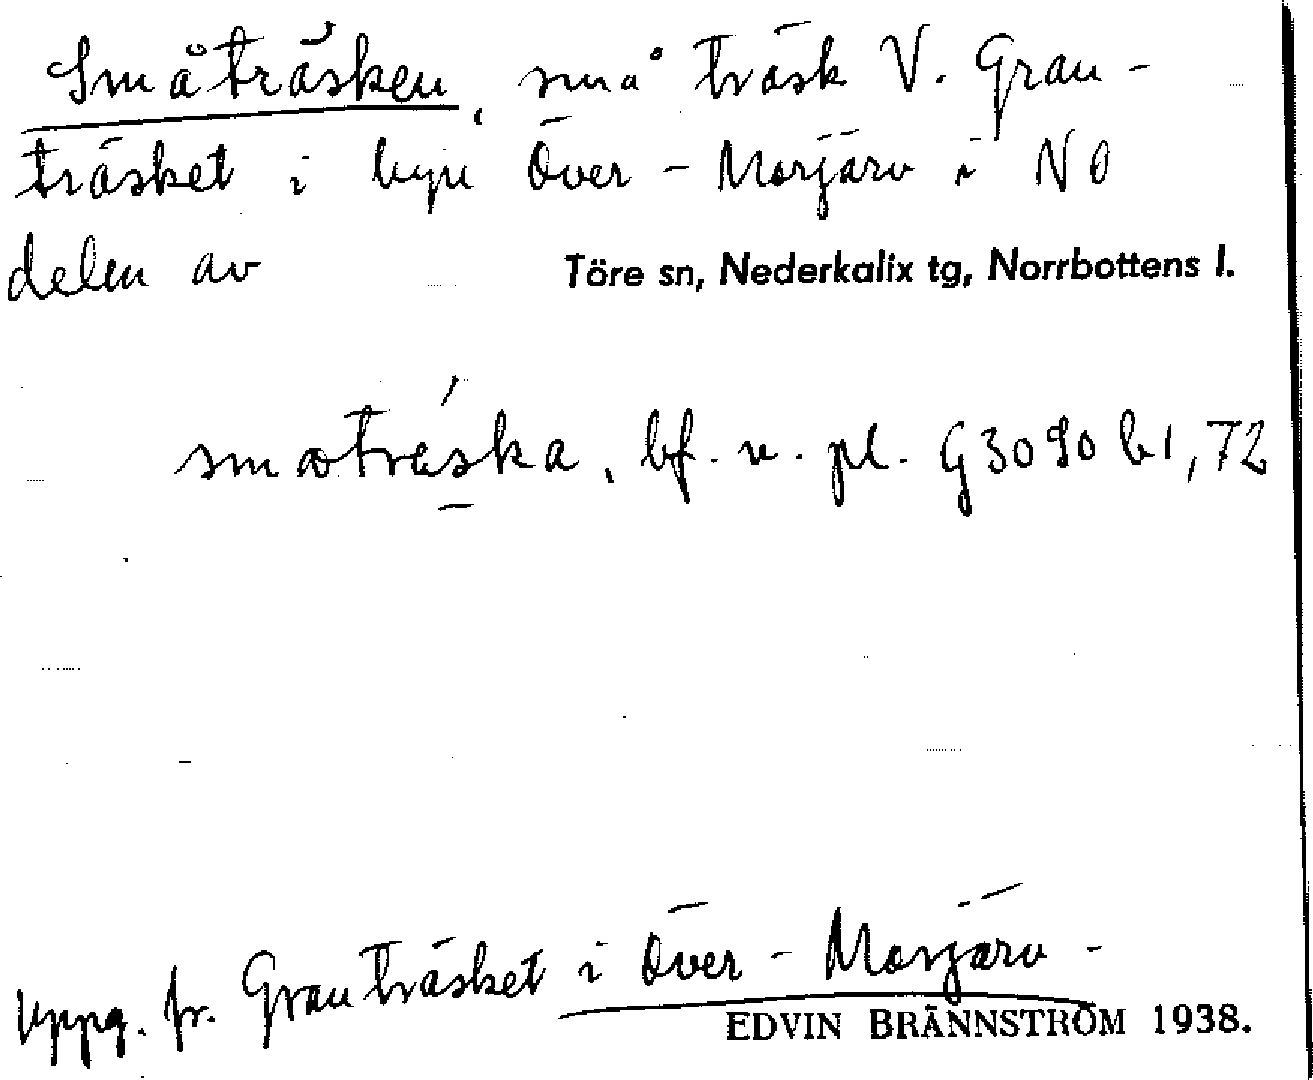 Småträsken, små träsk V. Gran-
träsket i byn Över-Morjärv i NO
delen av Töre sn, Nederkalix tg, Norrbottens l.
smotrǽska, bf. n. pl. G3090 b1, 72
Uppg. fr. Granträsket i Över-Morjärv -
EDVIN BRÄNNSTRÖM 1938.